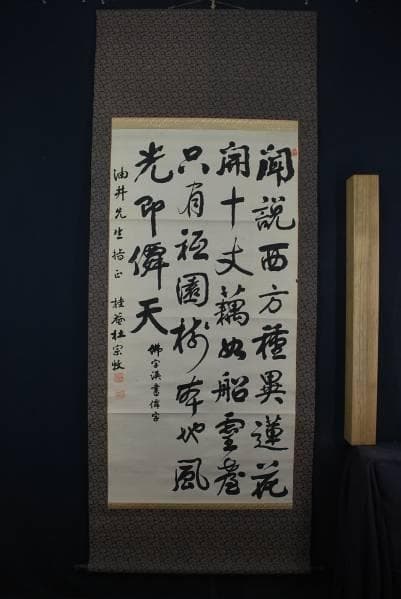 聞說西方種異蓮花
開十丈藕如船靈臺
只有祗園樹本地風
光即僊天
佛字誤書僊字
油井先生指正 桂菴杜宗牧